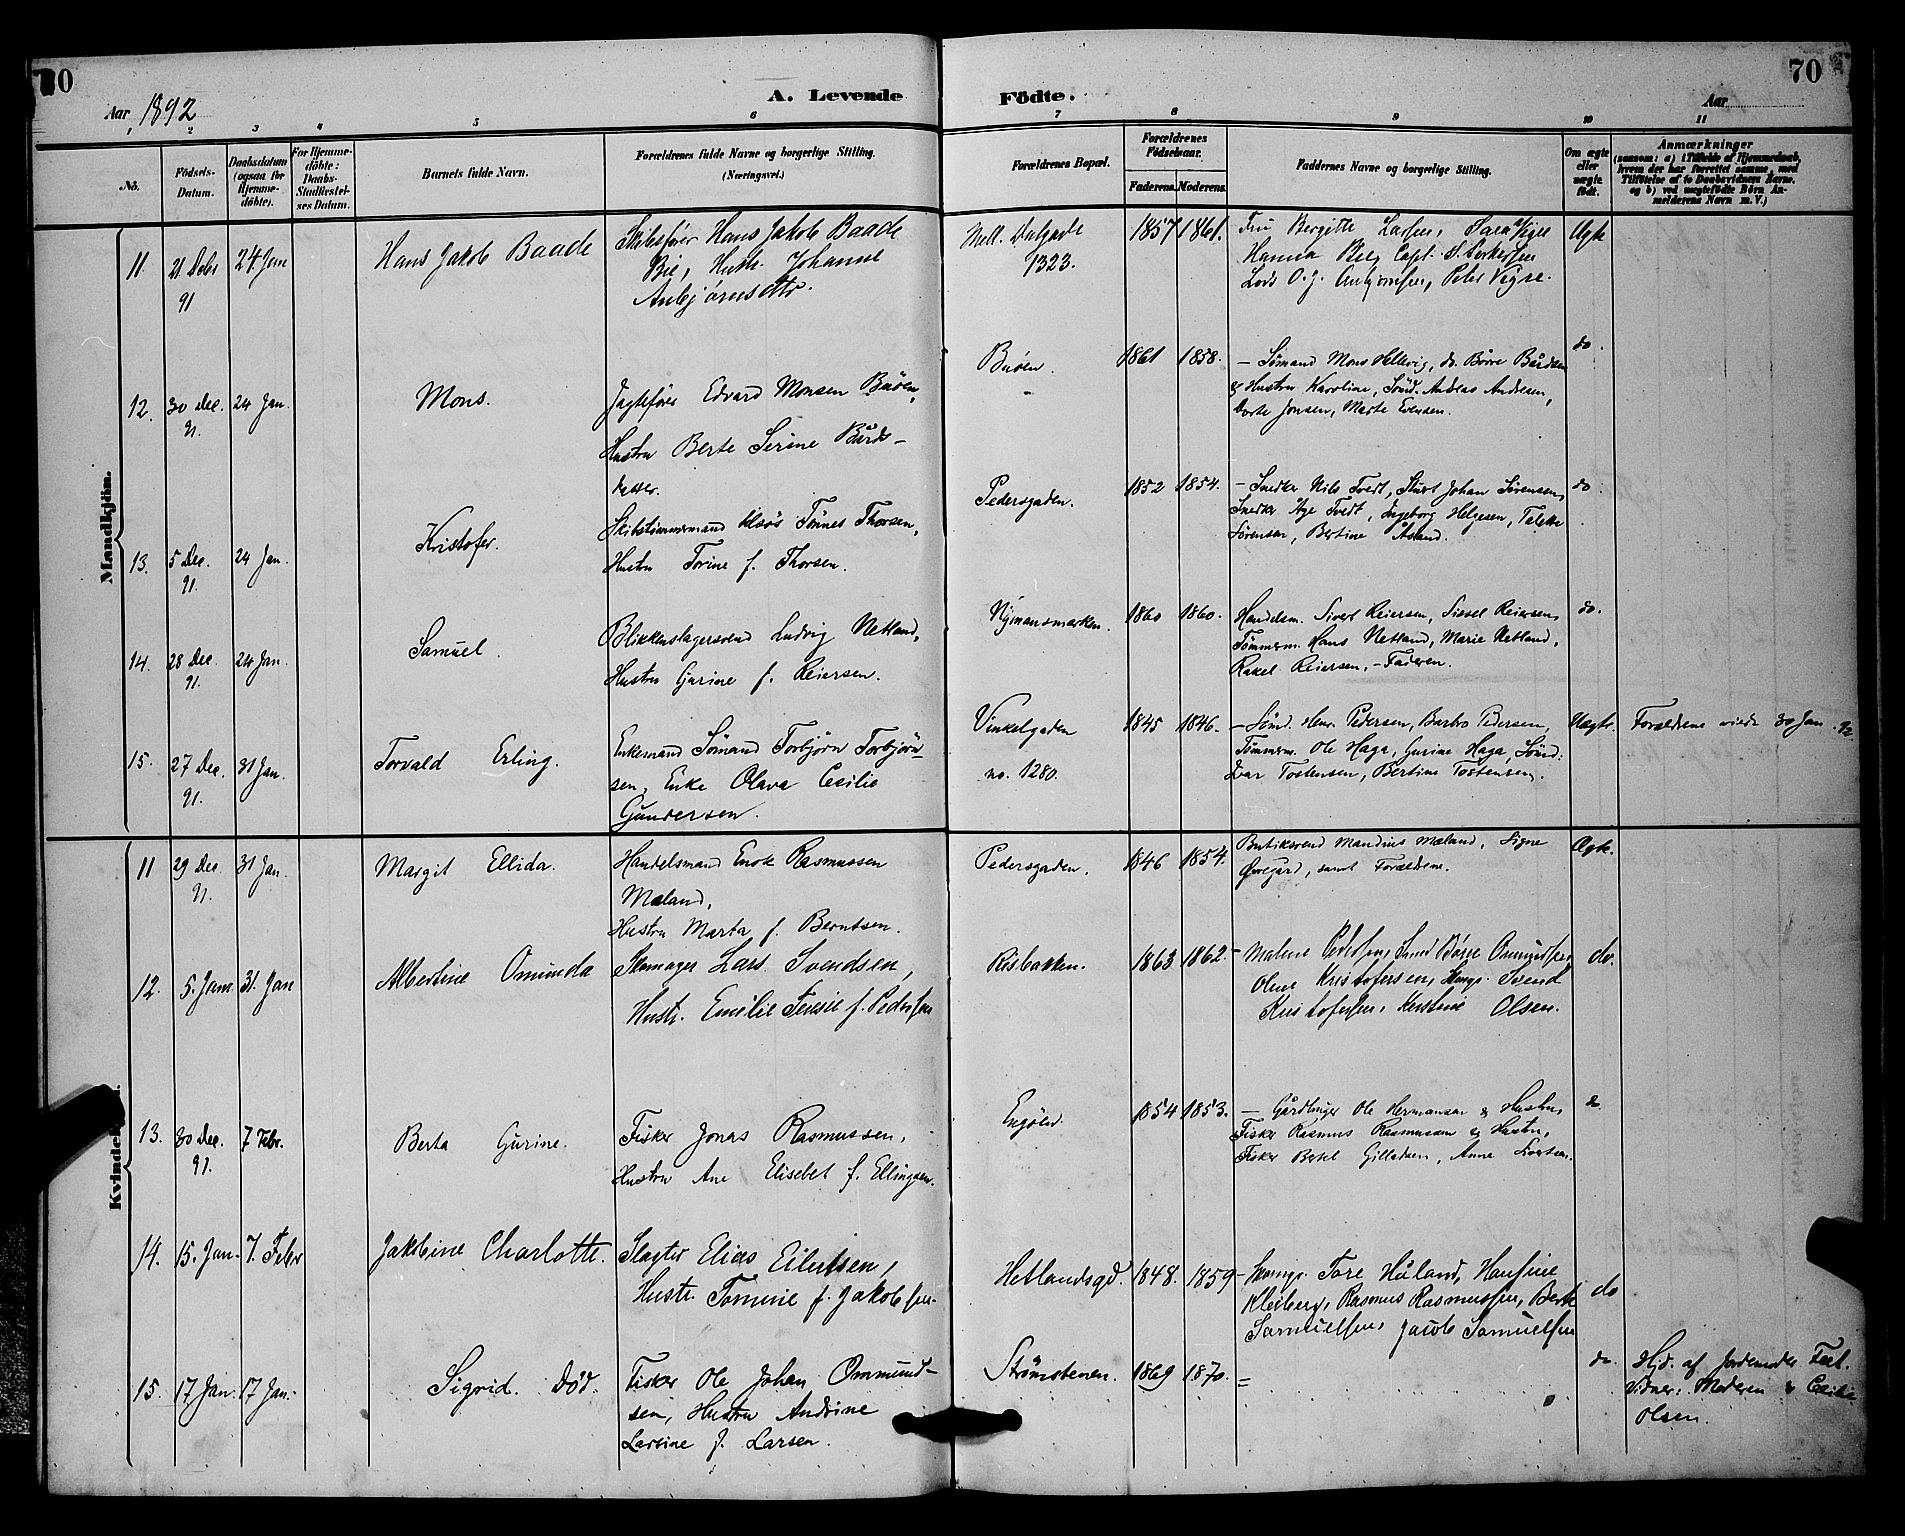 70
Aar 1892
A. Levende
Födte.
Aar
70
1 2 3 4 5 6 7 8 9 10 11
No.
Födsels-Datum.
Daabsdatum (ogsaa for Hjemme-döbte).
For Hjemme-döbte: Daabs-Stadfæstel-ses Datum.
Barnets fulde Navn.
Forældrenes fulde Navne og borgerlige Stilling. (Næringsvei.)
Forældrenes Bopæl.
Forældrenes Födselsaar.
Faderens. Moderens.
Faddernes Navne og borgerlige Stilling.
Om ægte eller uægte födt.
Anmærkninger
(saasom: a) i Tilfælde af Hjemmedaab, hvem der har forrettet samme, med Tilföielse af to Daabsvidners Navne, og b) ved uægtefödte Börn An-melderens Navn m. V.)
Mandkjön.
11. 21 Debr 91 24 Jan Hans Jakob Baade
Skibsfører Hans Jakob Baade
Bie, Hustr. Johanne
Anbjørnsdtr.
Mell. Dalgade
1323.
1857 1861.
Fru Bergitte Larsen, Sara Vigre
Hanna Berg Capt. S.
Lods O. J. Anbjørnsen, Peter Vigre.
Ægte
12. 30 Dec. 91. 24 Jan. Mons.
Jagtefører Edvard Monsen Buøen,
Hustru Berte Serine Bårds-
datter.
Buøen.
1861 1858.
- Sømand Mons Hellevig, do. Børre Bårdsen
& Hustru Karoline, Sømd. Andreas Andresen,
Dorte Jonsen, Marte Evensen.
do.
13. 5 Dec. 91. 24 Jan. Kristofer.
Skibstømmermand Klaas Tønnes Thorsen,
Hustru Torine f. Thorsen.
Pedersgaden.
1852 1854.
- Snedker Nils Tvedt, Johan Sørensen,
Snedker Åge Tvedt, Ingeborg Helgesen, Taletta
Sørensen, Bertine Åsland.
do.
14. 28 Dec. 91. 24 Jan. Samuel.
Blikkenslagersvend Ludvig Netland,
Hustru Gurine f. Reiersen.
Nymansmarken.
1860 1860.
Handelsm. Sivert Reiersen, Sissel Reiersen,
Tømmerm. Hans Netland, Marie Netland,
Rakel Reiersen, - Faderen.
do.
15. 27 Dec. 91. 31 Jan. Torvald Erling.
Enkemand Sømand Torbjørn Torbjørn-
sen, Enke Olava Cecilie
Gundersen.
Vinkelgaden
no. 1280.
1845 1846.
- Sømd. Pedersen, Barbro Pedersen,
Tømmerm. Ole Haga, Gurine Haga, Sømd.
Ivar Tostensen, Bertine Tostensen.
Uægte.
Forældrene viede 30 Jan. 92.
Kvindekjön.
11 29 Dec 91. 31 Jan. Margit Ellida.
Handelsmand Enok Rasmussen
Mæland,
Hustru Marta f. Berntsen.
Pedersgaden.
1846 1854.
Butiksvend Mandius Mæland, Signe
Øvregård, samt Forældrene.
Ægte.
12. 5. Jan 31. Jan Albertine Omunda
Skomager Lars Svendsen,
Hustr. Emilie Tensie f. Pedersen
Risbakken.
1863 1862.
- Malene Pedersen, Børre Omundsen,
Oline Kristofersen, Skomgr. Svend
Kristofersen, Kirstine Olsen.
do.
13. 30 Dec. 91. 7 Febr. Berta Gurine.
Fisker Jonas Rasmussen,
Hustru Ane Elisebet f. Ellingsen.
Engøen.
1854 1853.
- Gårdbruger Ole Hermansen & Hustru,
Fisker Rasmus Rasmussen & Hustru,
Fisker Bertel Gilladsen, Anna Sivertsen.
do.
14. 15. Jan. 7. Febr Jakobine Charlotte.
Slagter Elias Eilertsen,
Hustr. Tomine f. Jakobsen.
Hetlandsgd.
1848. 1859
- Skomgr. Tore Håland, Hansine
Kleiberg, Rasmus Rasmussen, Berte
Samuelsen, Jacob Samuelsen
do
15. 17 Jan. 17 Jan. Sigrid. Død.
Fisker Ole Johan Ommund-
sen, Hustru Andrine
Larsine f. Larsen.
Strømstenen.
1869 1870.
=
do.
Hjd. af Jordemoder
Vidner: Moderen &
Olsen.